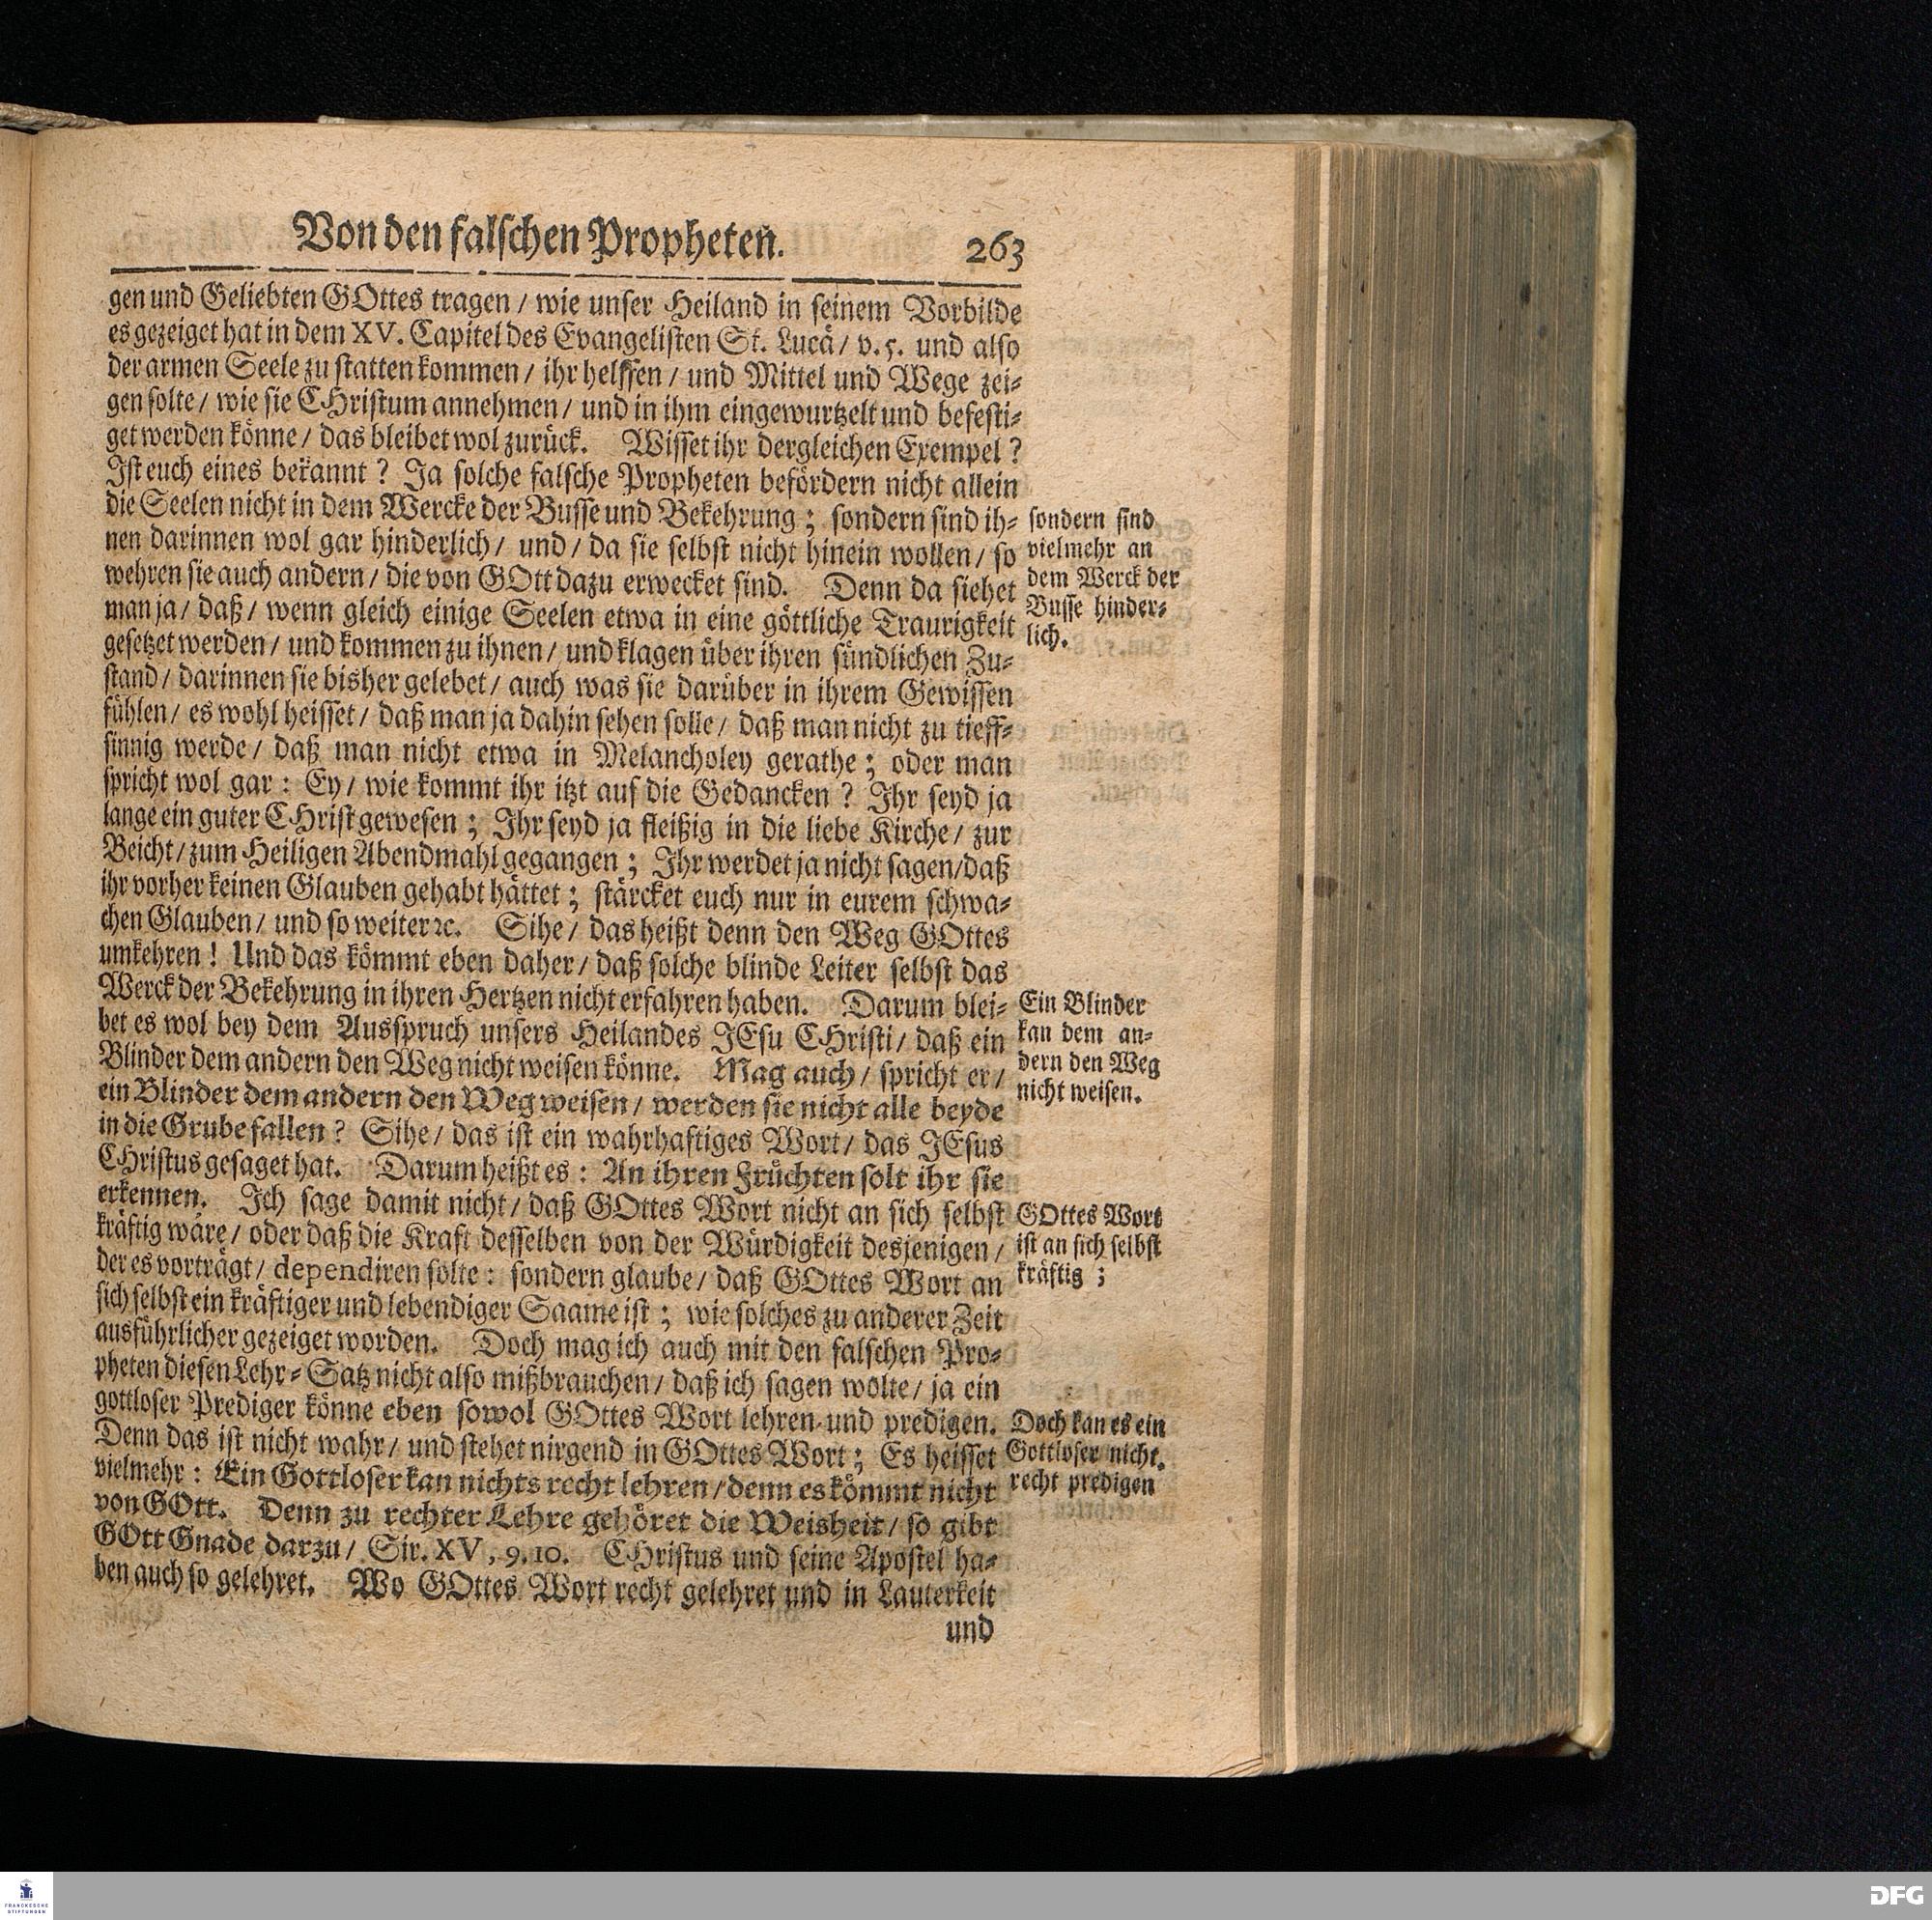 Von den falschen Propheten. 263
gen und Geliebten GOttes tragen / wie unser Heiland in seinem Vorbilde
es gezeiget hat in dem XV. Capitel des Evangelisten St. Lucä / v. 5. und also
der armen Seele zu statten kommen / ihr helffen / und Mittel und Wege zei-
gen solte / wie sie CHristum annehmen / und in ihm eingewurtzelt und befesti-
get werden könne / das bleibet wol zurück. Wisset ihr dergleichen Exempel ?
Ist euch eines bekannt ? Ja solche falsche Propheten befördern nicht allein
die Seelen nicht in dem Wercke der Busse und Bekehrung ; sondern sind ih-
nen darinnen wol gar hinderlich / und / da sie selbst nicht hinein wollen / so
wehren sie auch andern / die von GOtt dazu erwecket sind. Denn da siehet
man ja / daß / wenn gleich einige Seelen etwa in eine göttliche Traurigkeit
gesetzet werden / und kommen zu ihnen / und klagen über ihren sündlichen Zu-
stand / darinnen sie bisher gelebet / auch was sie darüber in ihrem Gewissen
fühlen / es wohl heisset / daß man ja dahin sehen solle / daß man nicht zu tieff-
sinnig werde / daß man nicht etwa in Melancholey gerathe ; oder man
spricht wol gar : Ey / wie kommt ihr itzt auf die Gedancken ? Ihr seyd ja
lange ein guter CHrist gewesen ; Ihr seyd ja fleißig in die liebe Kirche / zur
Beicht / zum Heiligen Abendmahl gegangen ; Ihr werdet ja nicht sagen / daß
ihr vorher keinen Glauben gehabt hättet ; stärcket euch nur in eurem schwa-
chen Glauben / und so weiter ꝛc. Sihe / das heißt denn den Weg GOttes
umkehren ! Und das kömmt eben daher / daß solche blinde Leiter selbst das
Werck der Bekehrung in ihren Hertzen nicht erfahren haben. Darum blei-
bet es wol bey dem Ausspruch unsers Heilandes JEsu CHristi / daß ein
Blinder dem andern den Weg nicht weisen könne. Mag auch / spricht er /
ein Blinder dem andern den Weg weisen / werden sie nicht alle beyde
in die Grube fallen ? Sihe / das ist ein wahrhaftiges Wort / das JEsus
CHristus gesaget hat. Darum heißt es : An ihren Früchten solt ihr sie
erkennen. Ich sage damit nicht / daß GOttes Wort nicht an sich selbst
kräftig wäre / oder daß die Kraft desselben von der Würdigkeit desjenigen /
der es vorträgt / dependiren solte : sondern glaube / daß GOttes Wort an
sich selbst ein kräftiger und lebendiger Saame ist ; wie solches zu anderer Zeit
ausführlicher gezeiget worden. Doch mag ich auch mit den falschen Pro-
pheten diesen Lehr-Satz nicht also mißbrauchen / daß ich sagen wolte / ja ein
gottloser Prediger könne eben sowol GOttes Wort lehren und predigen.
Denn das ist nicht wahr / und stehet nirgend in GOttes Wort ; Es heisset
vielmehr : Ein Gottloser kan nichts recht lehren / denn es kömmt nicht
von GOtt. Denn zu rechter Lehre gehöret die Weisheit / so gibt
GOtt Gnade darzu / Sir. XV, 9. 10. CHristus und seine Apostel ha-
ben auch so gelehret. Wo GOttes Wort recht gelehret und in Lauterkeit
und
sondern sind
vielmehr an
dem Werck der
Busse hinder-
lich.
Ein Blinder
kan dem an-
dern den Weg
nicht weisen.
GOttes Wort
ist an sich selbst
kräftig ;
Doch kan es ein
Gottloser nicht
recht predigen
FRANCKESCHE
STIFTUNGEN
DFG